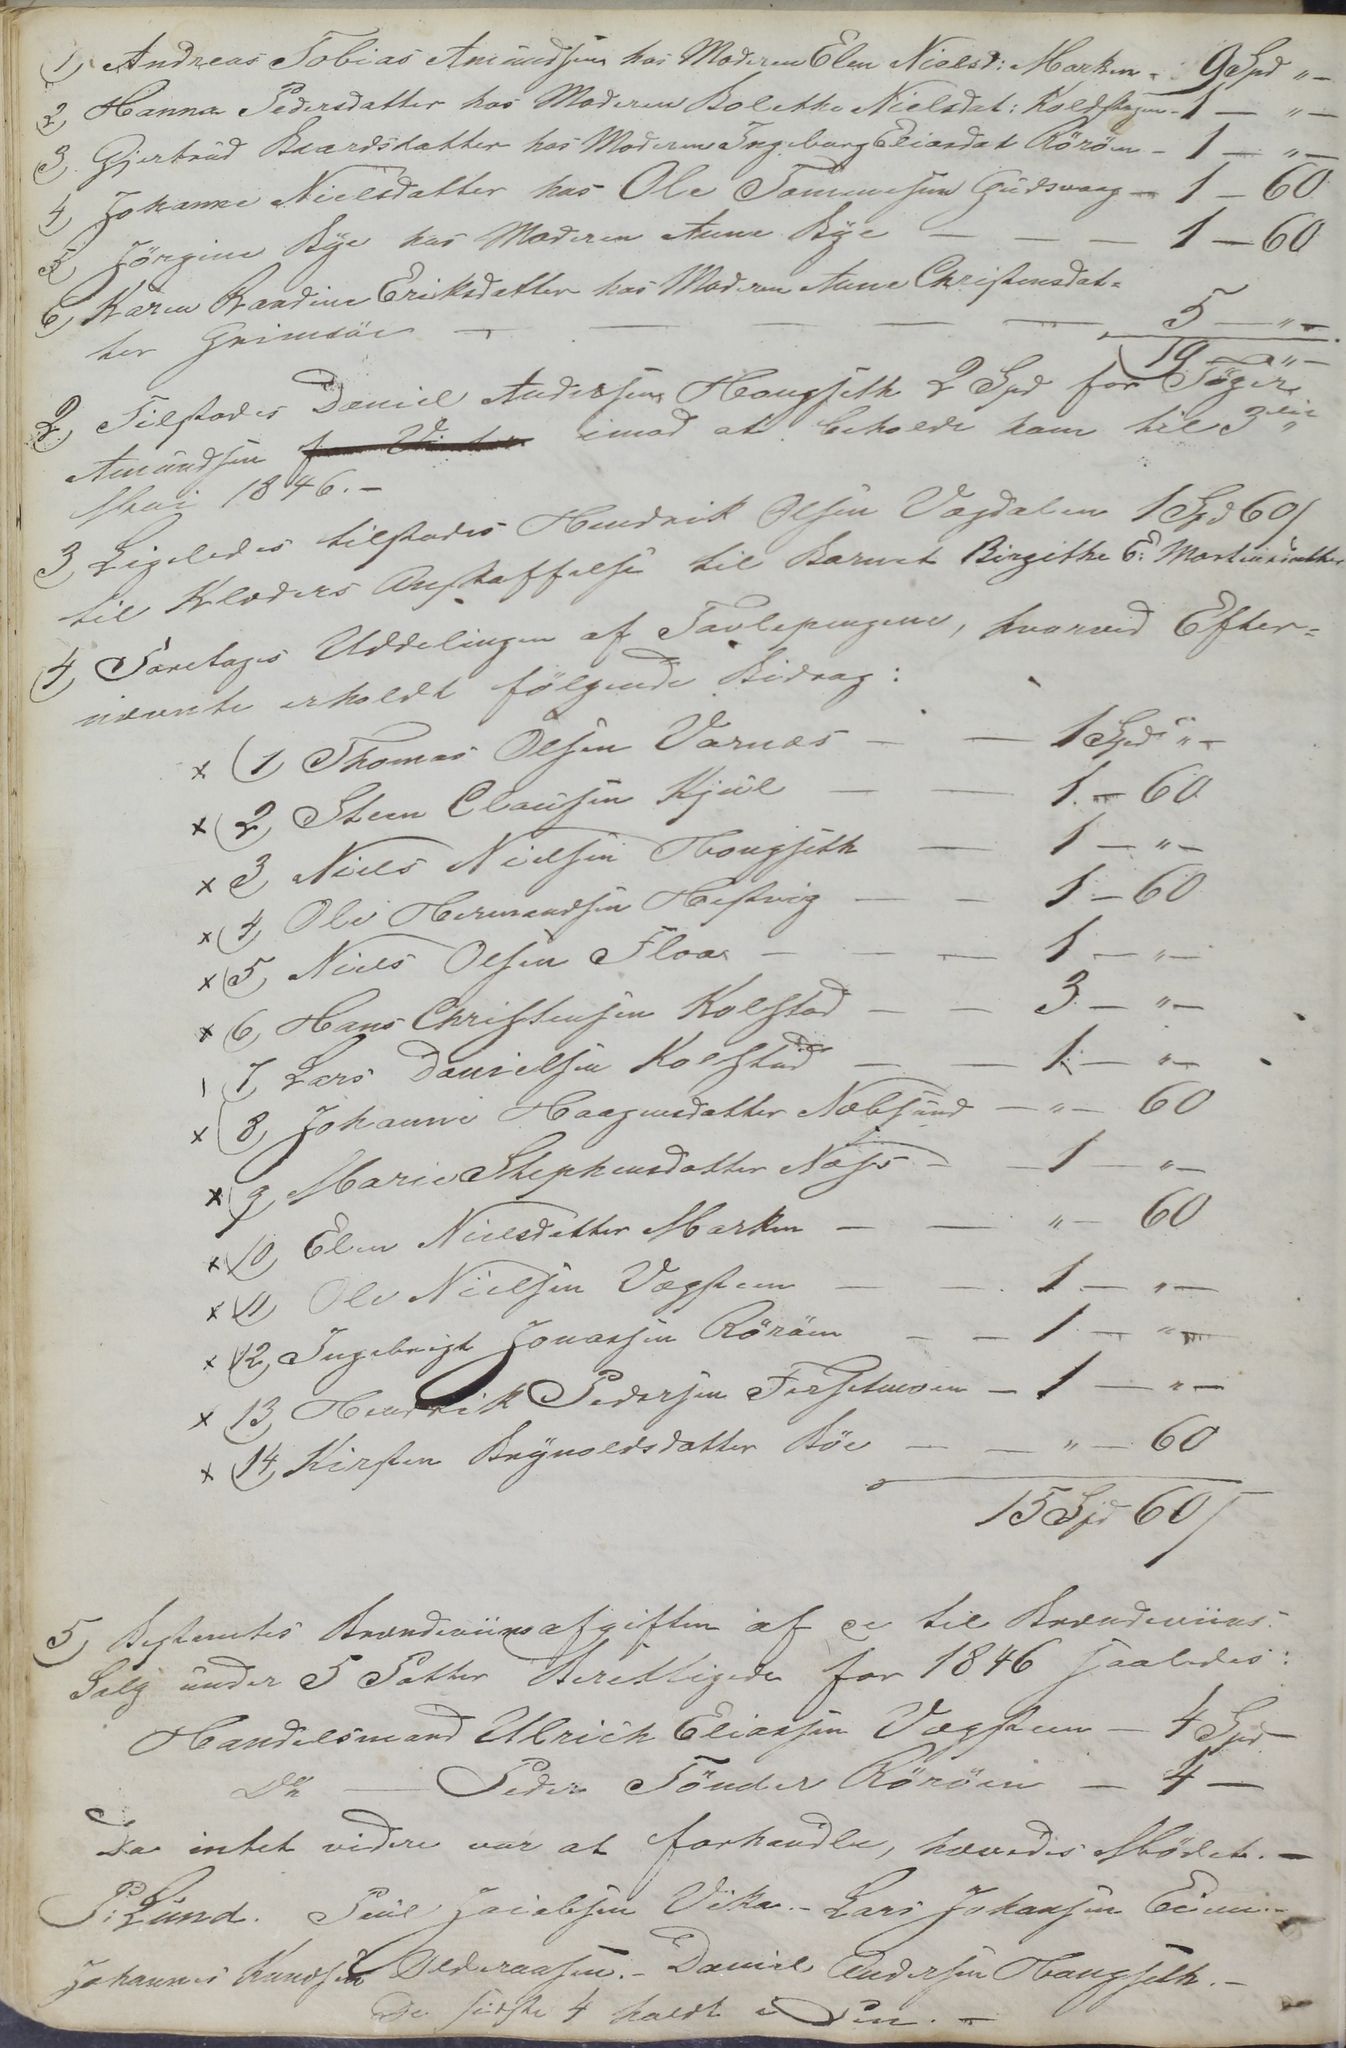 1) Andreas Tobias Amundsen hos Moderen Elen Nielsd: Marken - 9 Spd " -
2) Hanna Pedersdatter hos Moderen Bolette Nielsdat: - 1 — " —
3) Gjertrud Baardsdatter hos Moderen Ingeborg Eliasdat Röröen - 1 — " —
4) Johanne Nielsdatter hos Ole Tommesen Gudsvaag — 1 — 60
5) Jörgine Bye hos Moderen Anne Bye — — — 1 — 60
6) Karen Randine Eriksdatter hos Moderen Anne Christensdat-
ter Grimsöe — — — — — 5 — " —
19 — " —
2) Tilstodes Daniel Andersen Hongseth 2 Spd for Töger
Amundsen imod at beholde ham til 3die
Mai 1846. —
3 Ligeledes tilstodes Hendrik Olsen Vegdalen 1 Spd 60 s
til Klæders Anskaffelse til Barnet Birgithe E: Martinsdatter
4) Foretoges Uddelingen af Tavlepengene, hvorved Efter=
nævnte erholdt følgende Bidrag:
x (1) Thomas Olsen Varnæs — — 1 Spd " —
x (2) Steen Clausen Kjul — — 1 — 60
x 3) Niels Nielsen Hongseth — 1 — " —
x (4) Ole Hermandsen Hestvig — — 1 — 60
x (5) Niels Olsen Floa — — — 1 — " —
x (6) Hans Christensen Kolstad — — 3 — " —
7) Lars Danielsen Kolstad — — 1 — " —
x (8) Johanne Haagensdatter Nebsund — " — 60
x (9) Marie Stephensdatter Næss — — 1 — " —
x (10) Elen Nielsdatter Marken — — " — 60
x (11) Ole Nielsen Vegsteen — — 1 — " —
x (12) Ingebrigt Jonassen Röröen — — 1 — " —
x (13) Hendrik Pedersen Forsetmoen — 1 — " —
x (14) Kirsten Brynoldsdatter Böe — — " — 60
15 Spd 60 s
5) Bestemtes Brændeviinsafgiften af de til Brændeviins
Salg under 5 Potter Berettigede for 1846 saaledes:
Handelsmand Ullrich Eliassen Vegsteen — 4 Spd
Do — Peder Tönder Röröen — 4 —
Da intet videre var at forhandle, hævedes Mödet. —
P: Lund. Paul Jacobsen Vika. — Lars Johansen
Johannes Knudsen Olderaasen. — Daniel Andersen Hongseth. —
De sidste 4 holdt i Pen. —